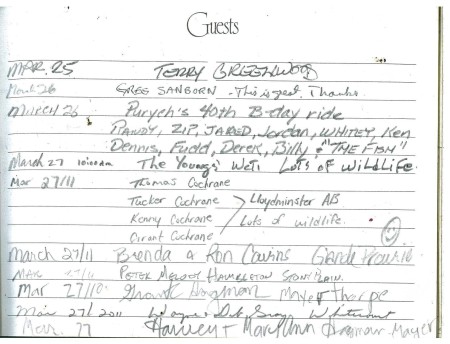 Guests
MAR. 25 TERRY GREENWOOD
March 26 GREG SANBORN - This is great. Thanks.
MARCH 26 Puryeh's 40th B-day ride
RANDY, ZIP, JARED, Jordan, WHITEY, Ken
Dennis, Fudd, Derek, Billy & "THE FISH"
March 27 10:00am The Youngs' Wet! Lots of Wildlife.
Mar 27/11 Thomas Cochrane
Tucker Cochrane > Lloydminster AB
Kenny Cochrane Lots of wildlife.
Grant Cochrane
March 27/11 Brenda & Ron Cousins Grande Prairie
MAR 27/11 PETER
Mar 27/10 Mayerthorpe
Mar 27/2011 Wayne & Deb Gray Whitecourt
Mar 27 Harvey + MaryAnn Mayer